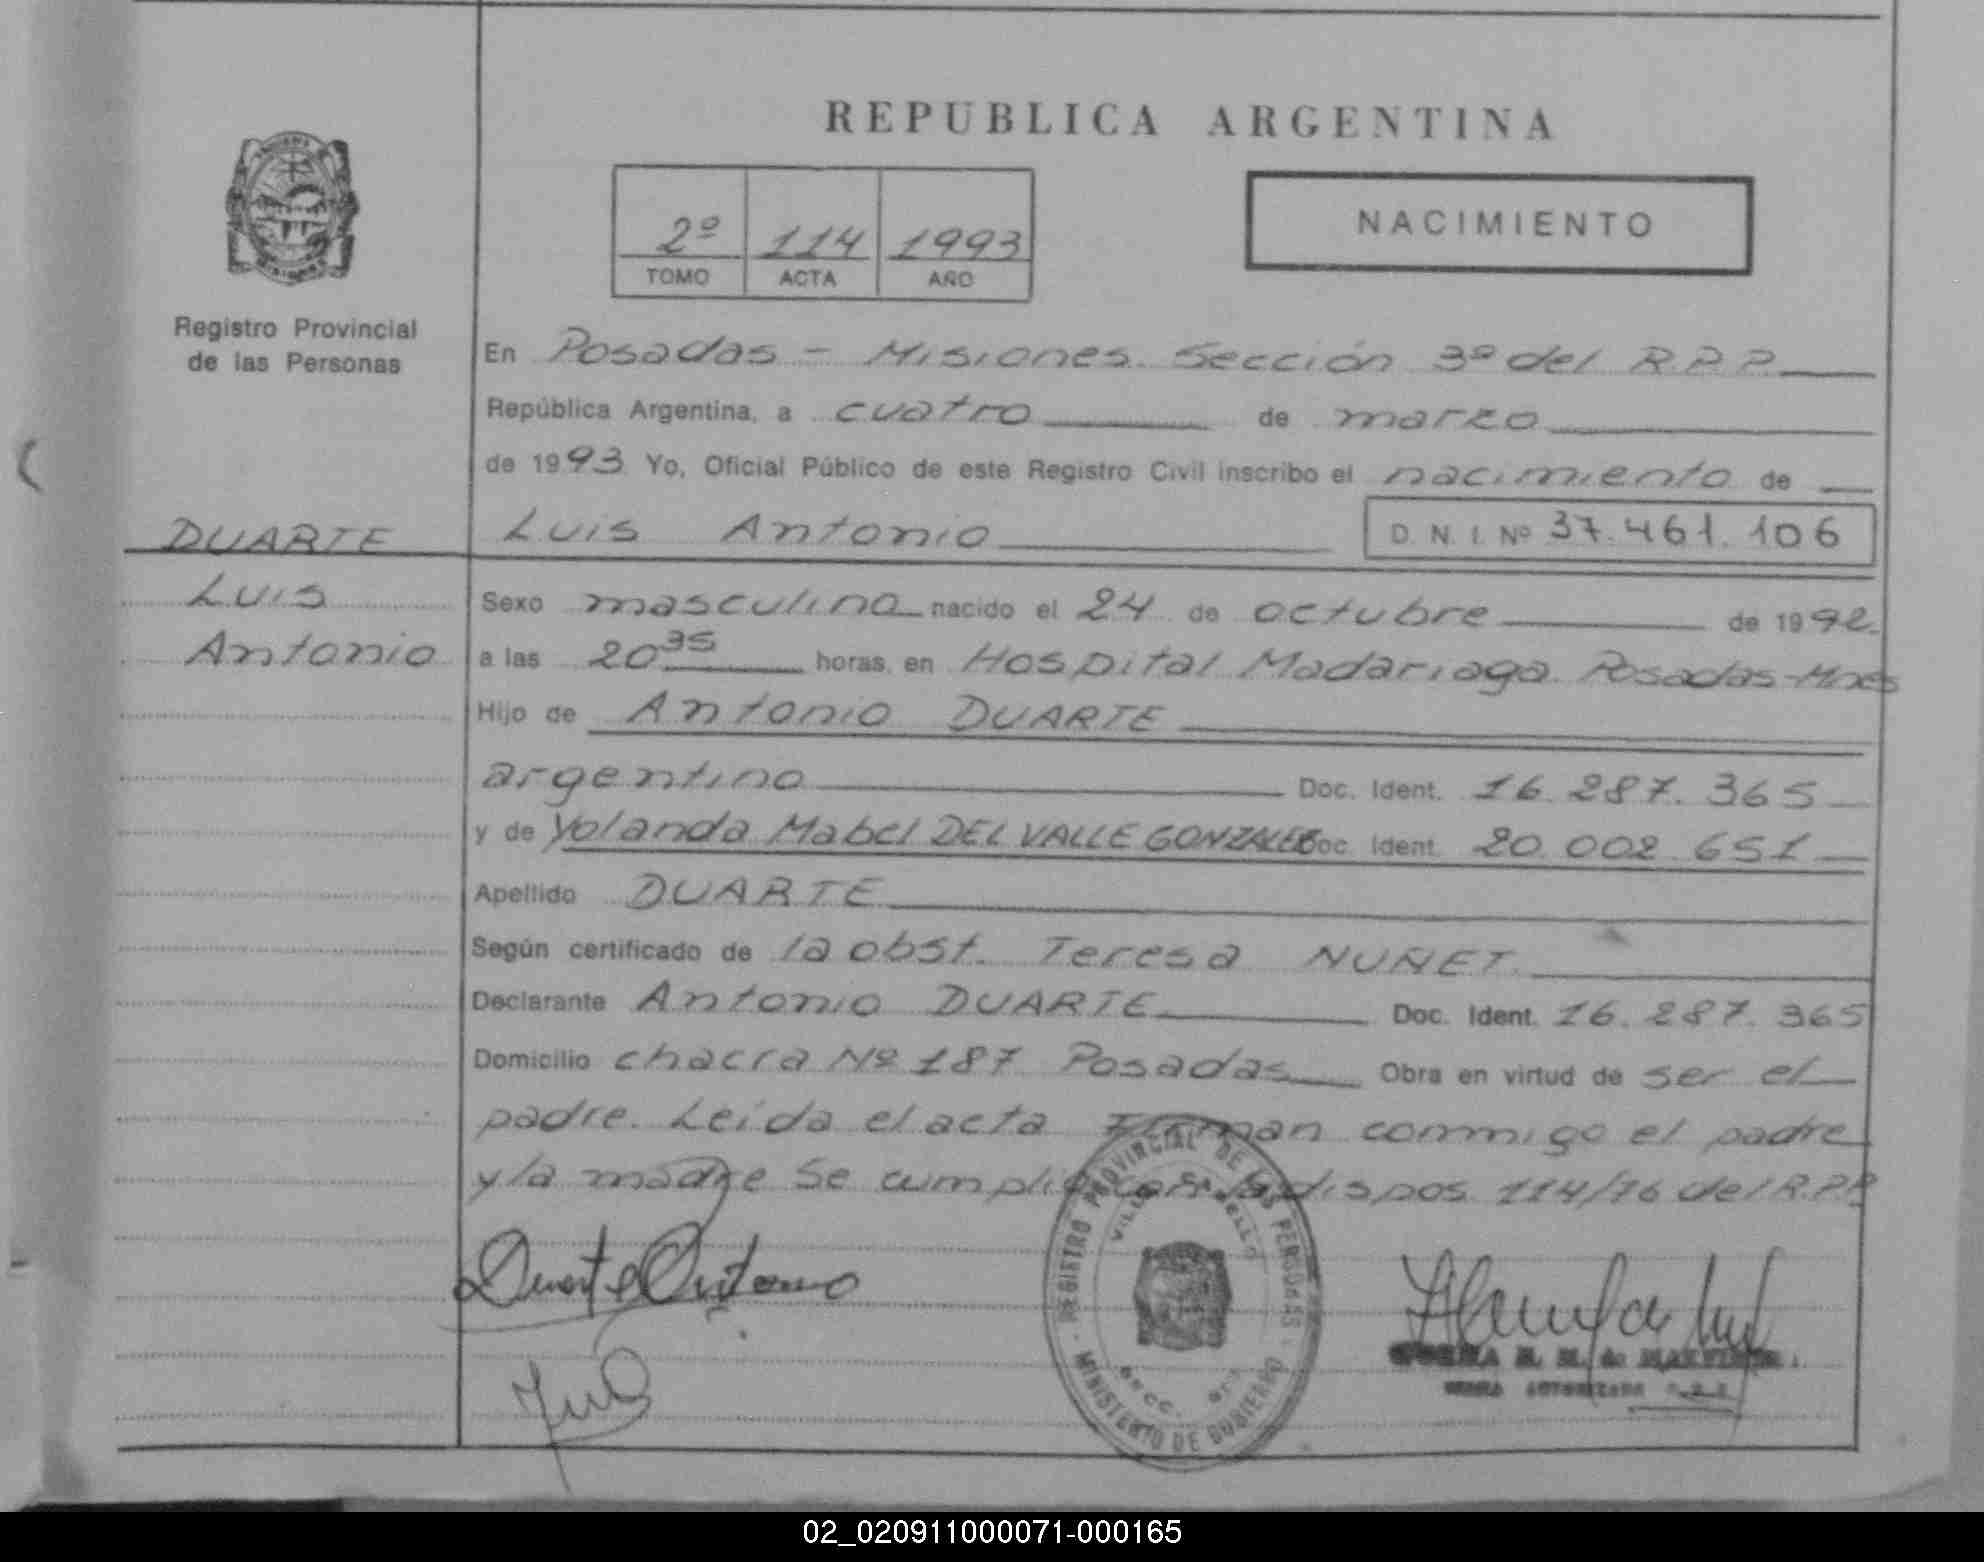 REPUBLICA ARGENTINA
2º 114 1993
TOMO ACTA AÑO
NACIMIENTO
Registro Provincial
de las Personas
En Posadas - Misiones. Sección 3º del R.P.P.
República Argentina, a cuatro de marzo
de 1993 Yo, Oficial Público de este Registro Civil inscribo el nacimiento de
DUARTE
Luis
Antonio
Luis Antonio
D. N. I. Nº 37.461.106
Sexo masculino nacido el 24 de octubre de 1992.
a las 20 35 horas, en Hospital Madariaga. Posadas-Mnes
Hijo de Antonio DUARTE
argentino Doc. Ident. 16.287.365
y de Yolanda Mabel DEL VALLE GONZALEZ Doc. Ident. 20.002.651
Apellido DUARTE
Según certificado de la obst. Teresa NUÑET.
Declarante Antonio DUARTE Doc. Ident. 16.287.365
Domicilio chacra Nº 187 Posadas Obra en virtud de ser el
padre. Leída el acta Firman conmigo el padre
y la madre Se cumplió con la dispos. 114/76 del R.P.P.
Duarte Antonio
REGISTRO PROVINCIAL DE LAS PERSONAS
MINISTERIO DE GOBIERNO
VILLA
02_020911000071-000165